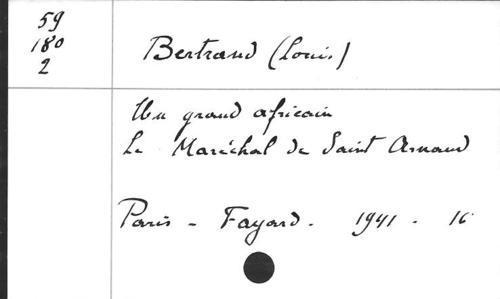 59
180
2
Bertrand (Louis)
Un grand africain
Le Maréchal de Saint Arnaud
Paris - Fayard - 1941 - 16